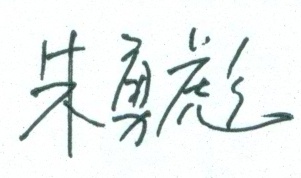 朱勇彪